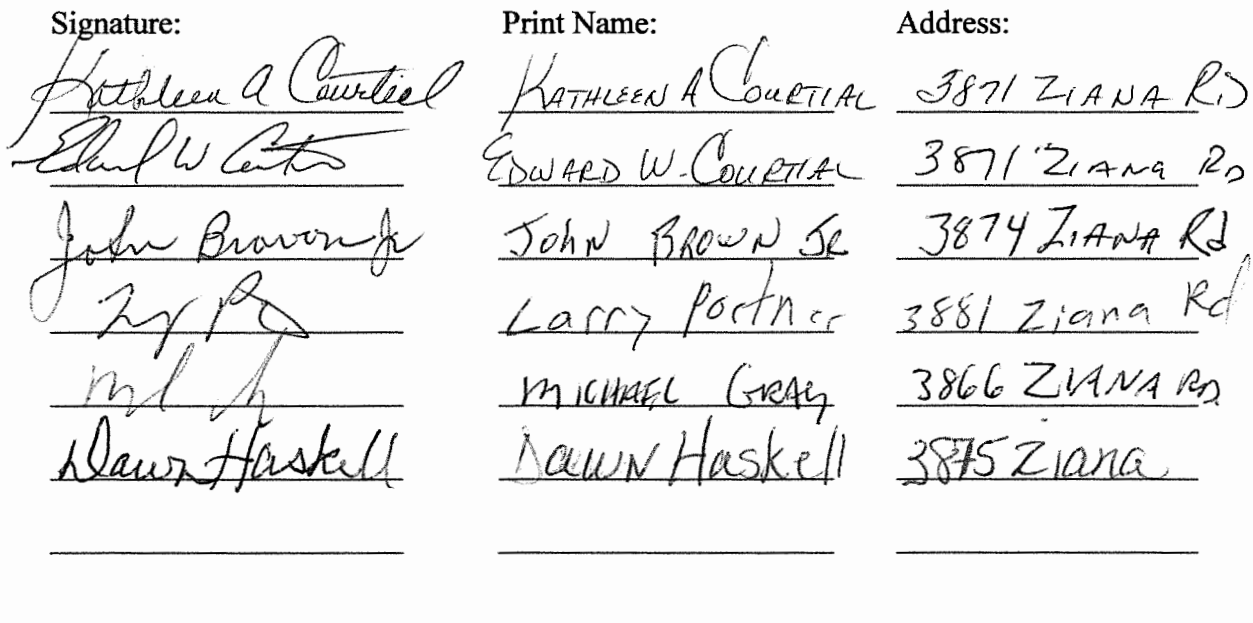 Signature: Print Name: Address:
Kathleen A Courtial KATHLEEN A COURTIAL 3871 ZIANA RD
Edward W EDWARD W. COURTIAL 3871 ZIANA RD
John Brown Jr JOHN BROWN JR 3874 ZIANA Rd
Larry Portner 3881 Ziana Rd
MICHAEL GRAY 3866 ZIANA RD
Dawn Haskell DAWN Haskell 3875 Ziana